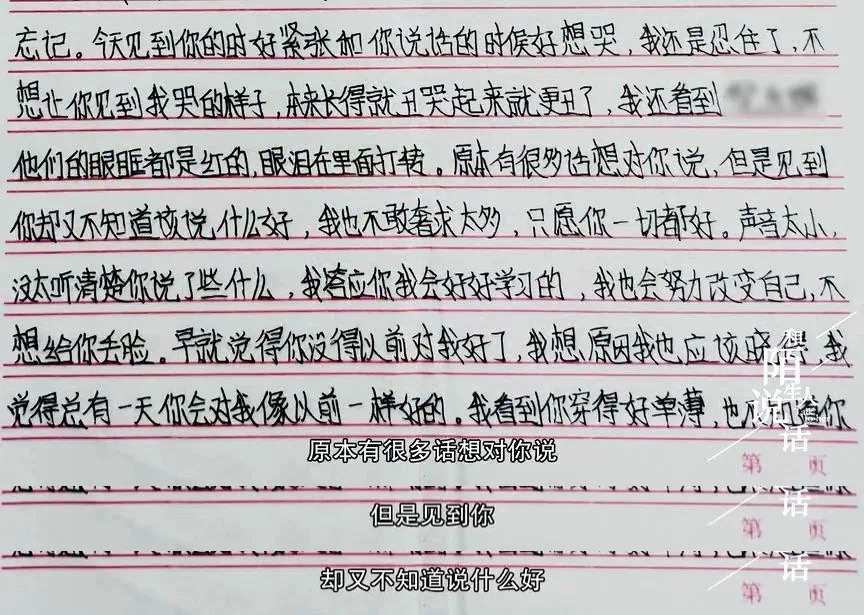 忘记。今天见到你的时好紧张和你说话的时候好想哭,我还是忍住了,不
想让你见到我哭的样子,本来长得就丑哭起来就更丑了,我还看到
他们的眼眶都是红的,眼泪在里面打转。原本有很多话想对你说,但是见到
你却又不知道该说什么好,我也不敢奢求太多,只愿你一切都好。声音太小,
没太听清楚你说了些什么,我答应你我会好好学习的,我也会努力改变自己,不
想给你丢脸。早就觉得你没得以前对我好了,我想原因我也应该晓得,我
觉得总有一天你会对我像以前一样好的。我看到你穿得好单薄,也
和陌生人说话
原本有很多话想对你说
第 页
但是见到你
话
第 页
却又不知道说什么好
话
第 页